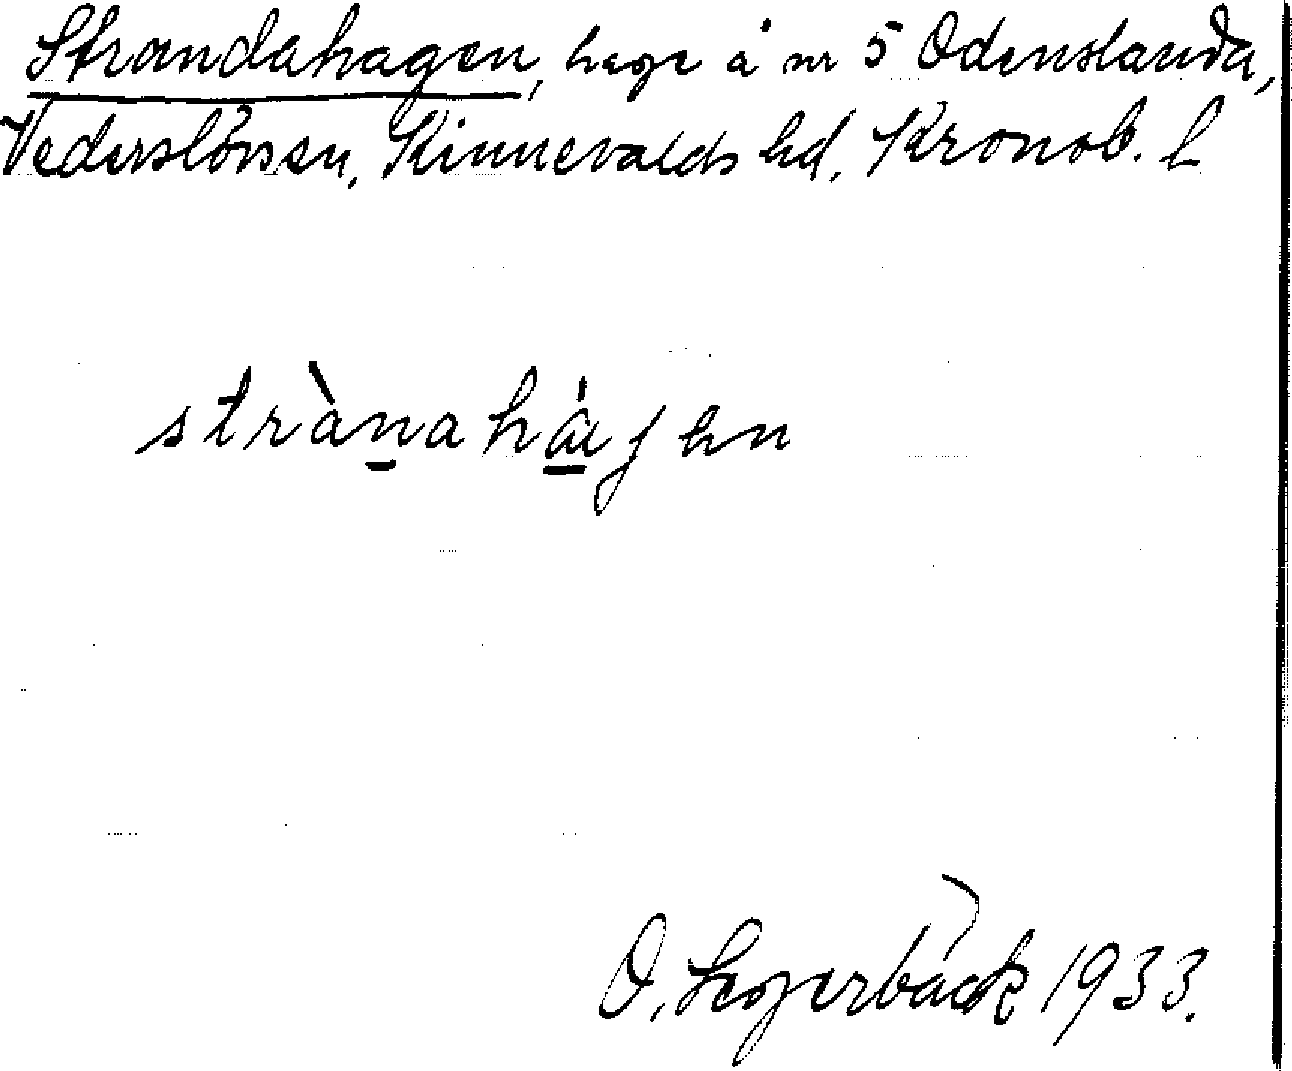 Strandahagen, hage å nr 5 Odenslanda,
Vederslövs sn, Kinnevalds hd, Kronob. l
strànahágen
O. Segerbäck 1933.